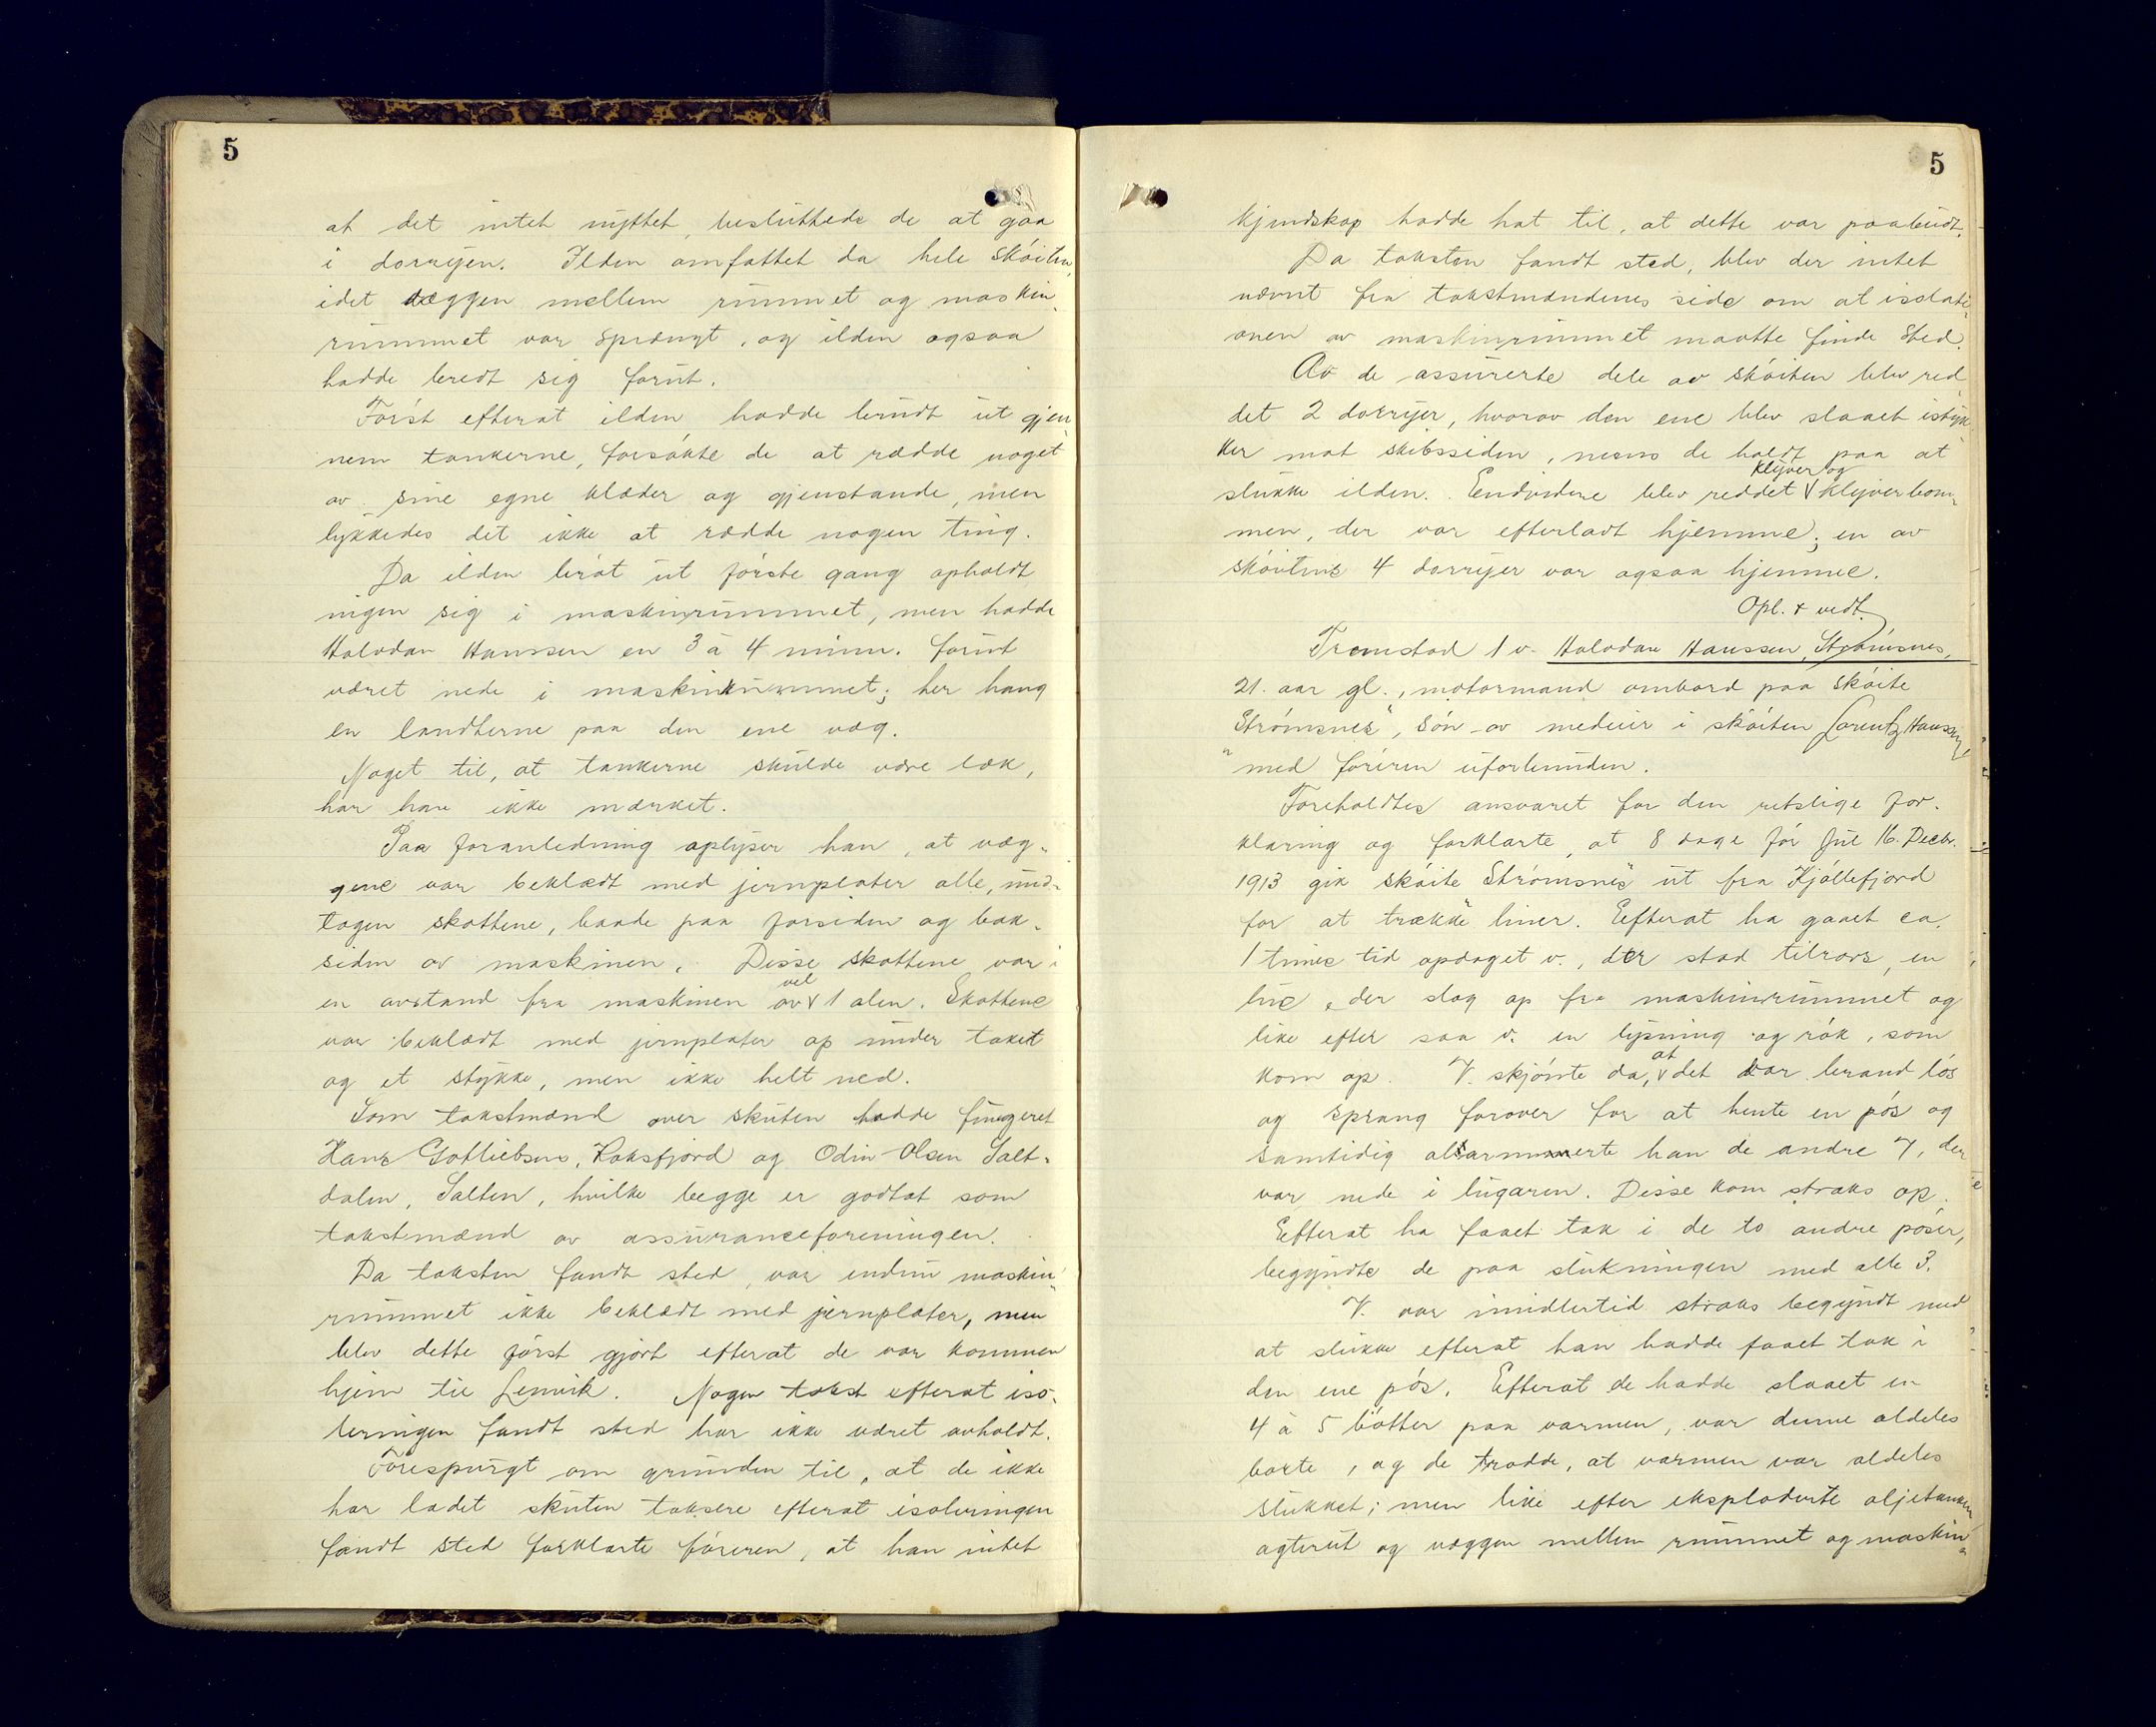 5
at det intet nyttet, besluttede de at gaa
i doryen. Ilden omfattet da hele skøiten,
idet væggen mellem rummet og maskin-
rummet var sprængt, og ilden ogsaa
hadde bredt sig forut.
Først efterat ilden hadde brudt ut gjen-
nem tankerne, forsøkte de at rædde noget
av sine egne klæder og gjenstande, men
lykkedes det ikke at rædde nogen ting.
Da ilden brøt ut første gang opholdt
ingen sig i maskinrummet, men hadde
Halvdan Hanssen en 3 à 4 minn. forut
været nede i maskinrummet; her hang
en landterne paa den ene væg.
Noget til, at tankerne skulde være læk,
har han ikke mærket.
Paa foranledning oplyser han, at væg-
gene var beklædt med jernplater alle, und-
tagen skottene, baade paa forsiden og bak-
siden av maskinen. Disse skottene var i
en avstand fra maskinen av vel 1 alen. Skottene
var beklædt med jernplater op under taket
og et stykke, men ikke helt ned.
Som takstmænd over skuten hadde fungeret
Hans Gotliebsen, Koksfjord og Odin Olsen Salt-
dalen, Salten, hvilke begge er godtat som
takstmænd av assuranceforeningen.
Da taksten fandt sted, var endnu maskin-
rummet ikke beklædt med jernplater, men
blev dette først gjort efterat de var kommen
hjem til Lenvik. Nogen takst efterat iso-
leringen fandt sted har ikke været avholdt.
Forespurgt om grunden til, at de ikke
har ladet skuten taksere efterat isoleringen
fandt sted forklarte føreren, at han intet
5
kjendskap hadde hat til, at dette var paabudt.
Da taksten fandt sted, blev der intet
nævnt fra takstmændenes side om at isolati-
onen av maskinrummet maatte finde sted.
Av de assurerte dele av skøiten blev red-
det 2 dorryer, hvorav den ene blev slaaet istyk-
ker mot skibssiden, mens de holdt paa at
slukke ilden. Endvidere blev reddet klyver og klyverbom-
men, der var efterladt hjemme; en av
skøitens 4 dorryer var ogsaa hjemme.
Opl. & vedt.
Fremstod 1 v. Halvdan Hanssen, Strømsnes,
21. aar gl., motormand ombord paa skøite
"Strømsnes", søn av medeier i skøiten Lorentz Hanssen,
med føreren uforbunden.
Foreholdtes ansvaret for den retslige for-
klaring og forklarte, at 8 dage før jul 16. Decbr.
1913 gik skøite "Strømsnes" ut fra Kjøllefjord
for at trække liner. Efterat ha gaaet ca.
1 times tid opdaget v., der stod tilrors, en
lue, der slog op fra maskinrummet og
like efter saa v. en lysning og røk, som
kom op. V. skjønte da, at det var brand løs
og sprang forover for at hente en pøs og
samtidig alarmerte han de andre 7, der
var nede i lugaren. Disse kom straks op.
Efterat ha faaet tak i de to andre pøser,
begyndte de paa slukningen med alle 3.
V. var imidlertid straks begyndt med
at slukke efterat han hadde faaet tak i
den ene pøs. Efterat de hadde slaaet en
4 à 5 bøtter paa varmen, var denne aldeles
borte, og de trodde, at varmen var aldeles
slukket; men like efter eksploderte oljetanken
agterut og væggen mellem rummet og maskin-